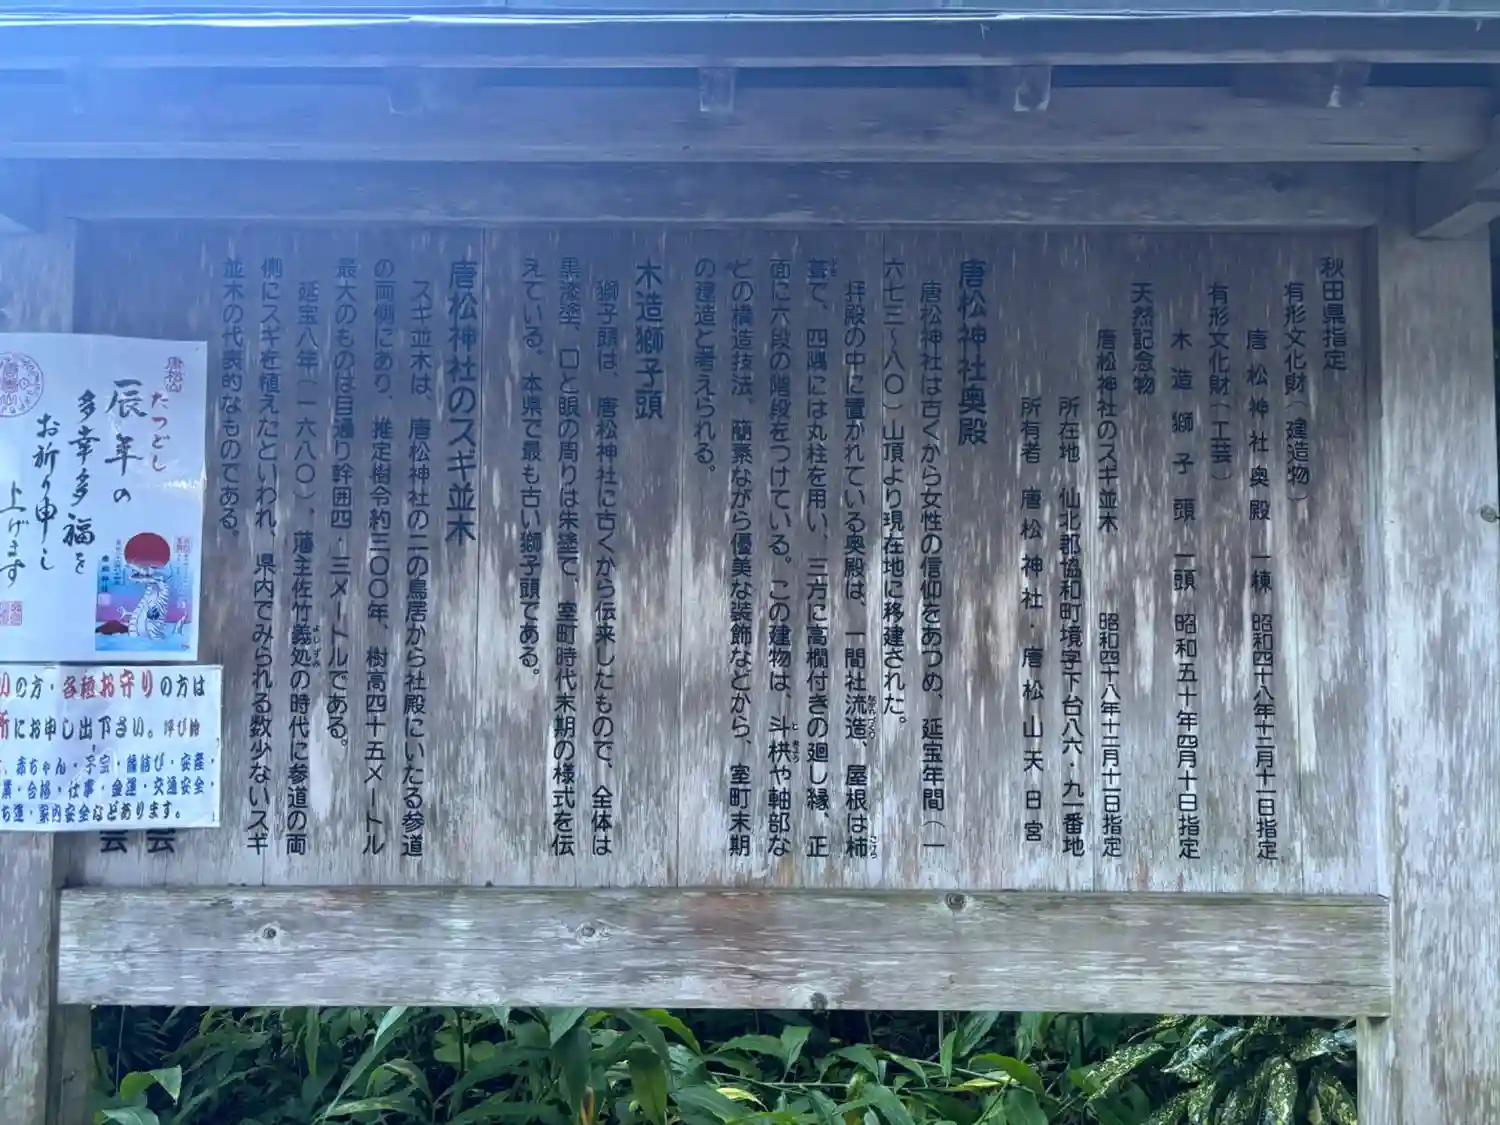 秋田県指定
有形文化財（建造物）
唐松神社奥殿 一棟 昭和四十八年十二月十一日指定
木造獅子頭 一頭 昭和五十年四月十日指定
有形文化財（工芸）
天然記念物
唐松神社のスギ並木 昭和四十八年十二月十一日指定
所在地 仙北郡協和町境字下台八六・九一番地
所有者 唐松神社・唐松山天日宮
唐松神社奥殿
唐松神社は古くから女性の信仰をあつめ、延宝年間（一
六七三〜八〇）山頂より現在地に移建された。
拝殿の中に置かれている奥殿は、一間社流造、屋根は杮
葺で、四隅には丸柱を用い、三方に高欄付きの廻し縁、正
面に六段の階段をつけている。この建物は、斗栱や軸部な
どの構造技法、簡素ながら優美な装飾などから、室町末期
の建造と考えられる。
木造獅子頭
獅子頭は、唐松神社に古くから伝来したもので、全体は
黒漆塗、口と眼の周りは朱塗で、室町時代末期の様式を伝
えている。本県で最も古い獅子頭である。
唐松神社のスギ並木
スギ並木は、唐松神社の二の鳥居から社殿にいたる参道
の両側にあり、推定樹令約三〇〇年、樹高四十五メートル
最大のものは目通り幹囲四・三メートルである。
延宝八年（一六八〇）、藩主佐竹義処の時代に参道の両
側にスギを植えたといわれ、県内でみられる数少ないスギ
並木の代表的なものである。
会
会
唐松山
たつどし
辰年の
多幸多福を
お祈り申し
上げます
の方・各種お守りの方は
所にお申し出下さい。呼び鈴
赤ちゃん・子宝・縁結び・安産・
業・合格・仕事・金運・交通安全・
ち運・家内安全などあります。